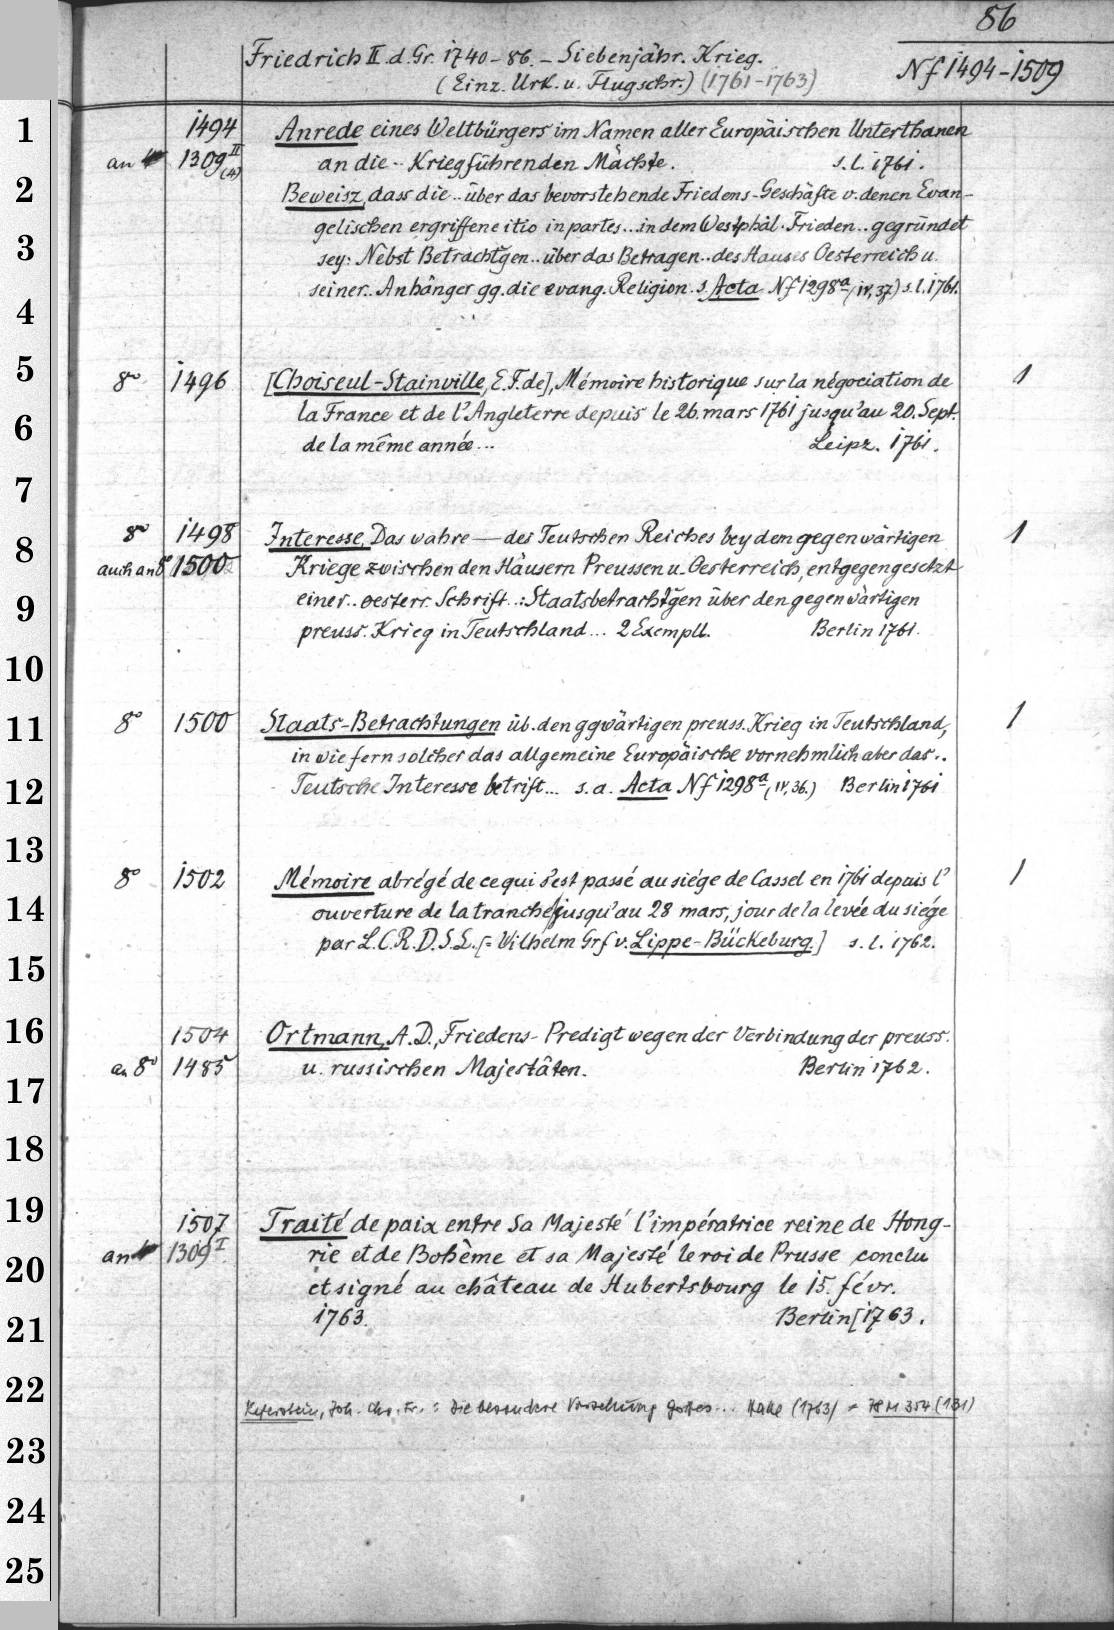 86
Friedrich II. d. Gr. 1740-86. - Siebenjähr. Krieg.
(Einz. Urk. u. Flugschr.) (1761-1763)
Nf 1494-1509
1
2
3
4
5
6
7
8
9
10
11
12
13
14
15
16
17
18
19
20
21
22
23
24
25
1494 Anrede eines Weltbürgers im Namen aller Europäischen Unterthanen
an 1309 II (4) an die .. Kriegführenden Mächte. s. l. 1761.
Beweisz, dass die .. über das bevorstehende Friedens-Geschäfte v. denen Evan-
gelischen ergriffene itio in partes ... in dem Westphäl. Frieden .. gegründet
sey: Nebst Betrachtgen .. über das Betragen .. des Hauses Oesterreich u.
seiner .. Anhänger gg. die evang. Religion. s. Acta Nf 1298a (IV, 37) s. l. 1761.
8° 1496 [Choiseul-Stainville, E. F. de], Mémoire historique sur la négociation de 1
la France et de l'Angleterre depuis le 26. mars 1761 jusqu'au 20. Sept.
de la même année ... Leipz. 1761.
8° 1498 Interesse, Das wahre — des Teutschen Reiches bey dem gegenwärtigen 1
auch an 8° 1500 Kriege zwischen den Häusern Preussen u. Oesterreich, entgegengesetzt
einer .. oesterr. Schrift ..: Staatsbetrachtgen über den gegenwärtigen
preuss. Krieg in Teutschland ... 2 Exempll. Berlin 1761.
8° 1500 Staats-Betrachtungen üb. den ggwärtigen preuss. Krieg in Teutschland, 1
in wie fern solcher das allgemeine Europäische vornehmlich aber das ..
Teutsche Interesse betrift ... s. a. Acta Nf 1298a (IV, 36.) Berlin 1761
8° 1502 Mémoire abrégé de ce qui s'est passé au siége de Cassel en 1761 depuis l' 1
ouverture de la tranchée jusqu'au 28 mars, jour de la levée du siége
par L. C. R. D. S. L. [= Wilhelm Grf v. Lippe-Bückeburg.] s. l. 1762.
1504 Ortmann, A. D., Friedens-Predigt wegen der Verbindung der preuss.
an 8° 1485 u. russischen Majestäten. Berlin 1762.
1507 Traité de paix entre Sa Majesté l'impératrice reine de Hong-
an 1309 I rie et de Bohème et sa Majesté le roi de Prusse conclu
et signé au château de Hubertsbourg le 15. févr.
1763. Berlin [1763.
Keferstein, Joh. Chr. Fr.: Die besondere Vorsehung Gottes ... Halle (1763) = 78 M 354 (131)